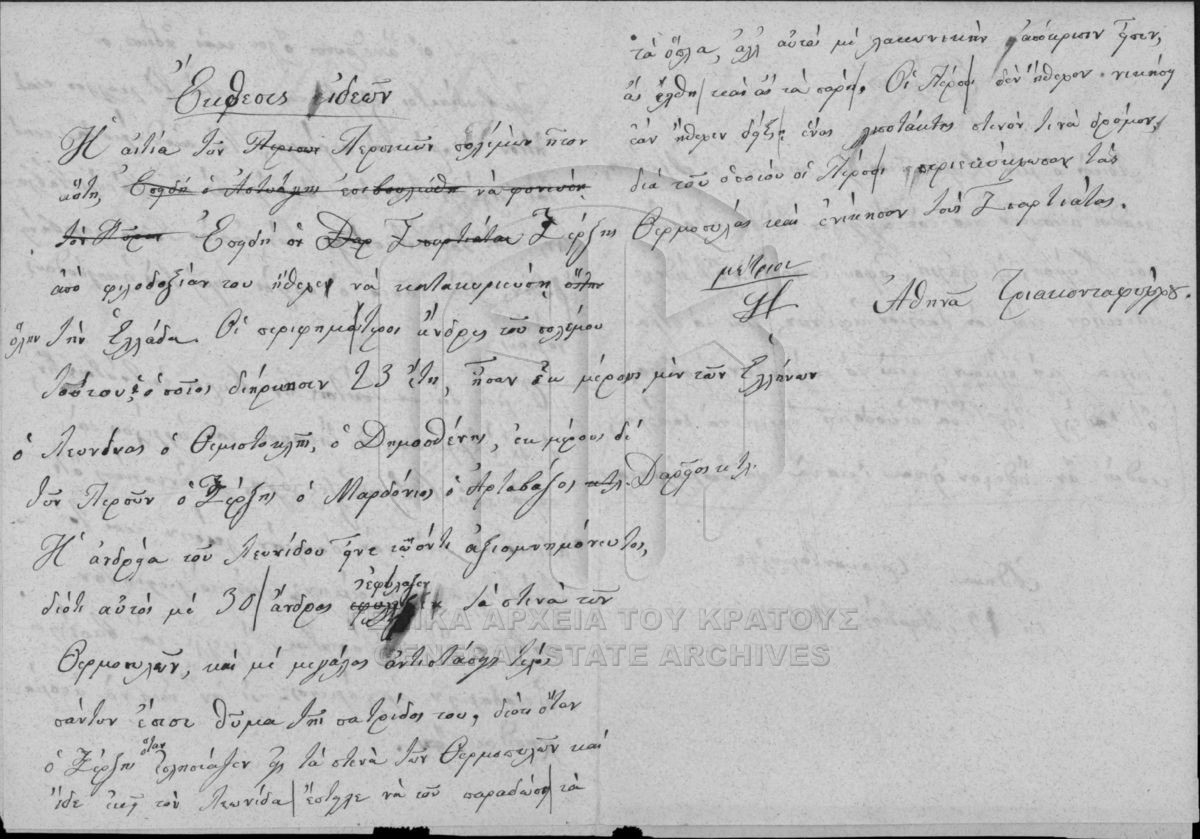 Ἔκθεσις ἰδεῶν
Ἡ αἰτία τῶν Περσικῶν πολέμων ἦτον
αὕτη, Ἐπειδή ὁ Ἀστυάγης ἐπεβουλεύθη νὰ φονεύσῃ
τὸν Κύρον Ἐπειδή ὁ Δαρ Σπαρτιάται Ξέρξης
ἀπό φιλοδοξίαν του ἤθελεν νὰ κατακυριεύσῃ
ὅλην τὴν Ἑλλάδα. Οἱ περιφημότεροι ἄνδρες τοῦ πολέμου
τούτου, ὁ ὁποῖος διήρκησεν 23 ἔτη, ἦσαν ἐκ μέρους μὲν τῶν Ἑλλήνων
ὁ Λεωνίδας ὁ Θεμιστοκλῆς, ὁ Δημοσθένης, ἐκ μέρους δὲ
τῶν Περσῶν ὁ Ξέρξης ὁ Μαρδόνιος ὁ Ἀρτάβαζος κτλ. Δαρεῖος κτλ.
Ἡ ἀνδρεία τοῦ Λεωνίδου εἶνε τῷ ὄντι ἀξιομνημόνευτος,
διότι αὐτός μὲ 30 ἄνδρας ἐφύλαξεν τὰ στενὰ τῶν
Θερμοπυλῶν, καὶ μὲ μεγάλας ἀντιστάσεις
πάντων ἔπεσε θῦμα τῆς πατρίδος του, διότι ὅταν
ὁ Ξέρξης ὅταν ἐπλησίασεν εἰς τὰ στενὰ τῶν Θερμοπυλῶν καὶ
εἶδε ἐκεῖ τὸν Λεωνίδα ἔστειλε νὰ τοῦ παραδώσῃ τὰ
τὰ ὅπλα, ἀλλ αὐτός μὲ λακωνικὴν ἀπόκρισιν εἶπεν,
ἄς ἔλθῃ καὶ ἄς τὰ πάρῃ. Οἱ Πέρσαι δὲν ἤθελον νικήσῃ
ἐάν ἤθελεν δείξει ἕνας λιποτάκτης στενόν τινὰ δρόμον,
διὰ τοῦ ὁποίου οἱ Πέρσαι περιεκύκλωσαν τὰς
Θερμοπύλας καὶ ἐνίκησαν τοὺς Σπαρτιάτας.
μέτριοι
Ἀθηνᾶ Τριακονταφύλλου.
ΓΕΝΙΚΑ ΑΡΧΕΙΑ ΤΟΥ ΚΡΑΤΟΥΣ
GENERAL STATE ARCHIVES